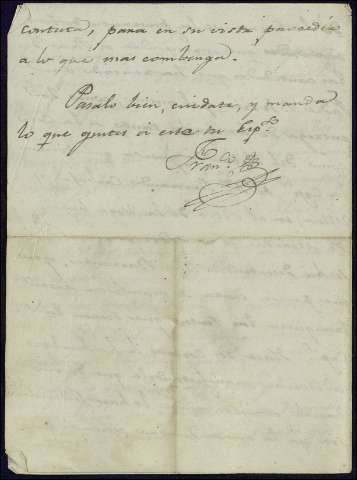 contuta, para en su vista procedér
a lo que mas combenga.
Pásalo bien, cuidate, y manda
lo que gustes á este tu Esp.º
Fran.co